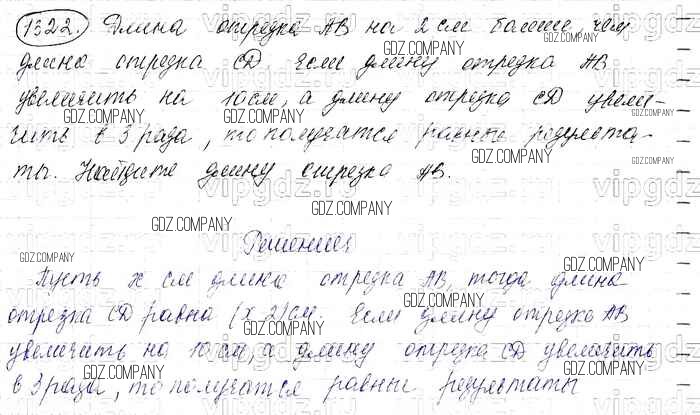 1322. Длина отрезка AB на 2 см больше, чем
длина отрезка CD. Если длину отрезка AB
увеличить на 10 см, а длину отрезка CD увели-
чить в 3 раза, то получатся равные результа-
ты. Найдите длину отрезка AB.
Решение
Пусть x см длина отрезка AB, тогда длина
отрезка CD равна (x 2) см. Если длину отрезка AB
увеличить на 10 см, а длину отрезка CD увеличить
в 3 раза, то получатся равные результаты